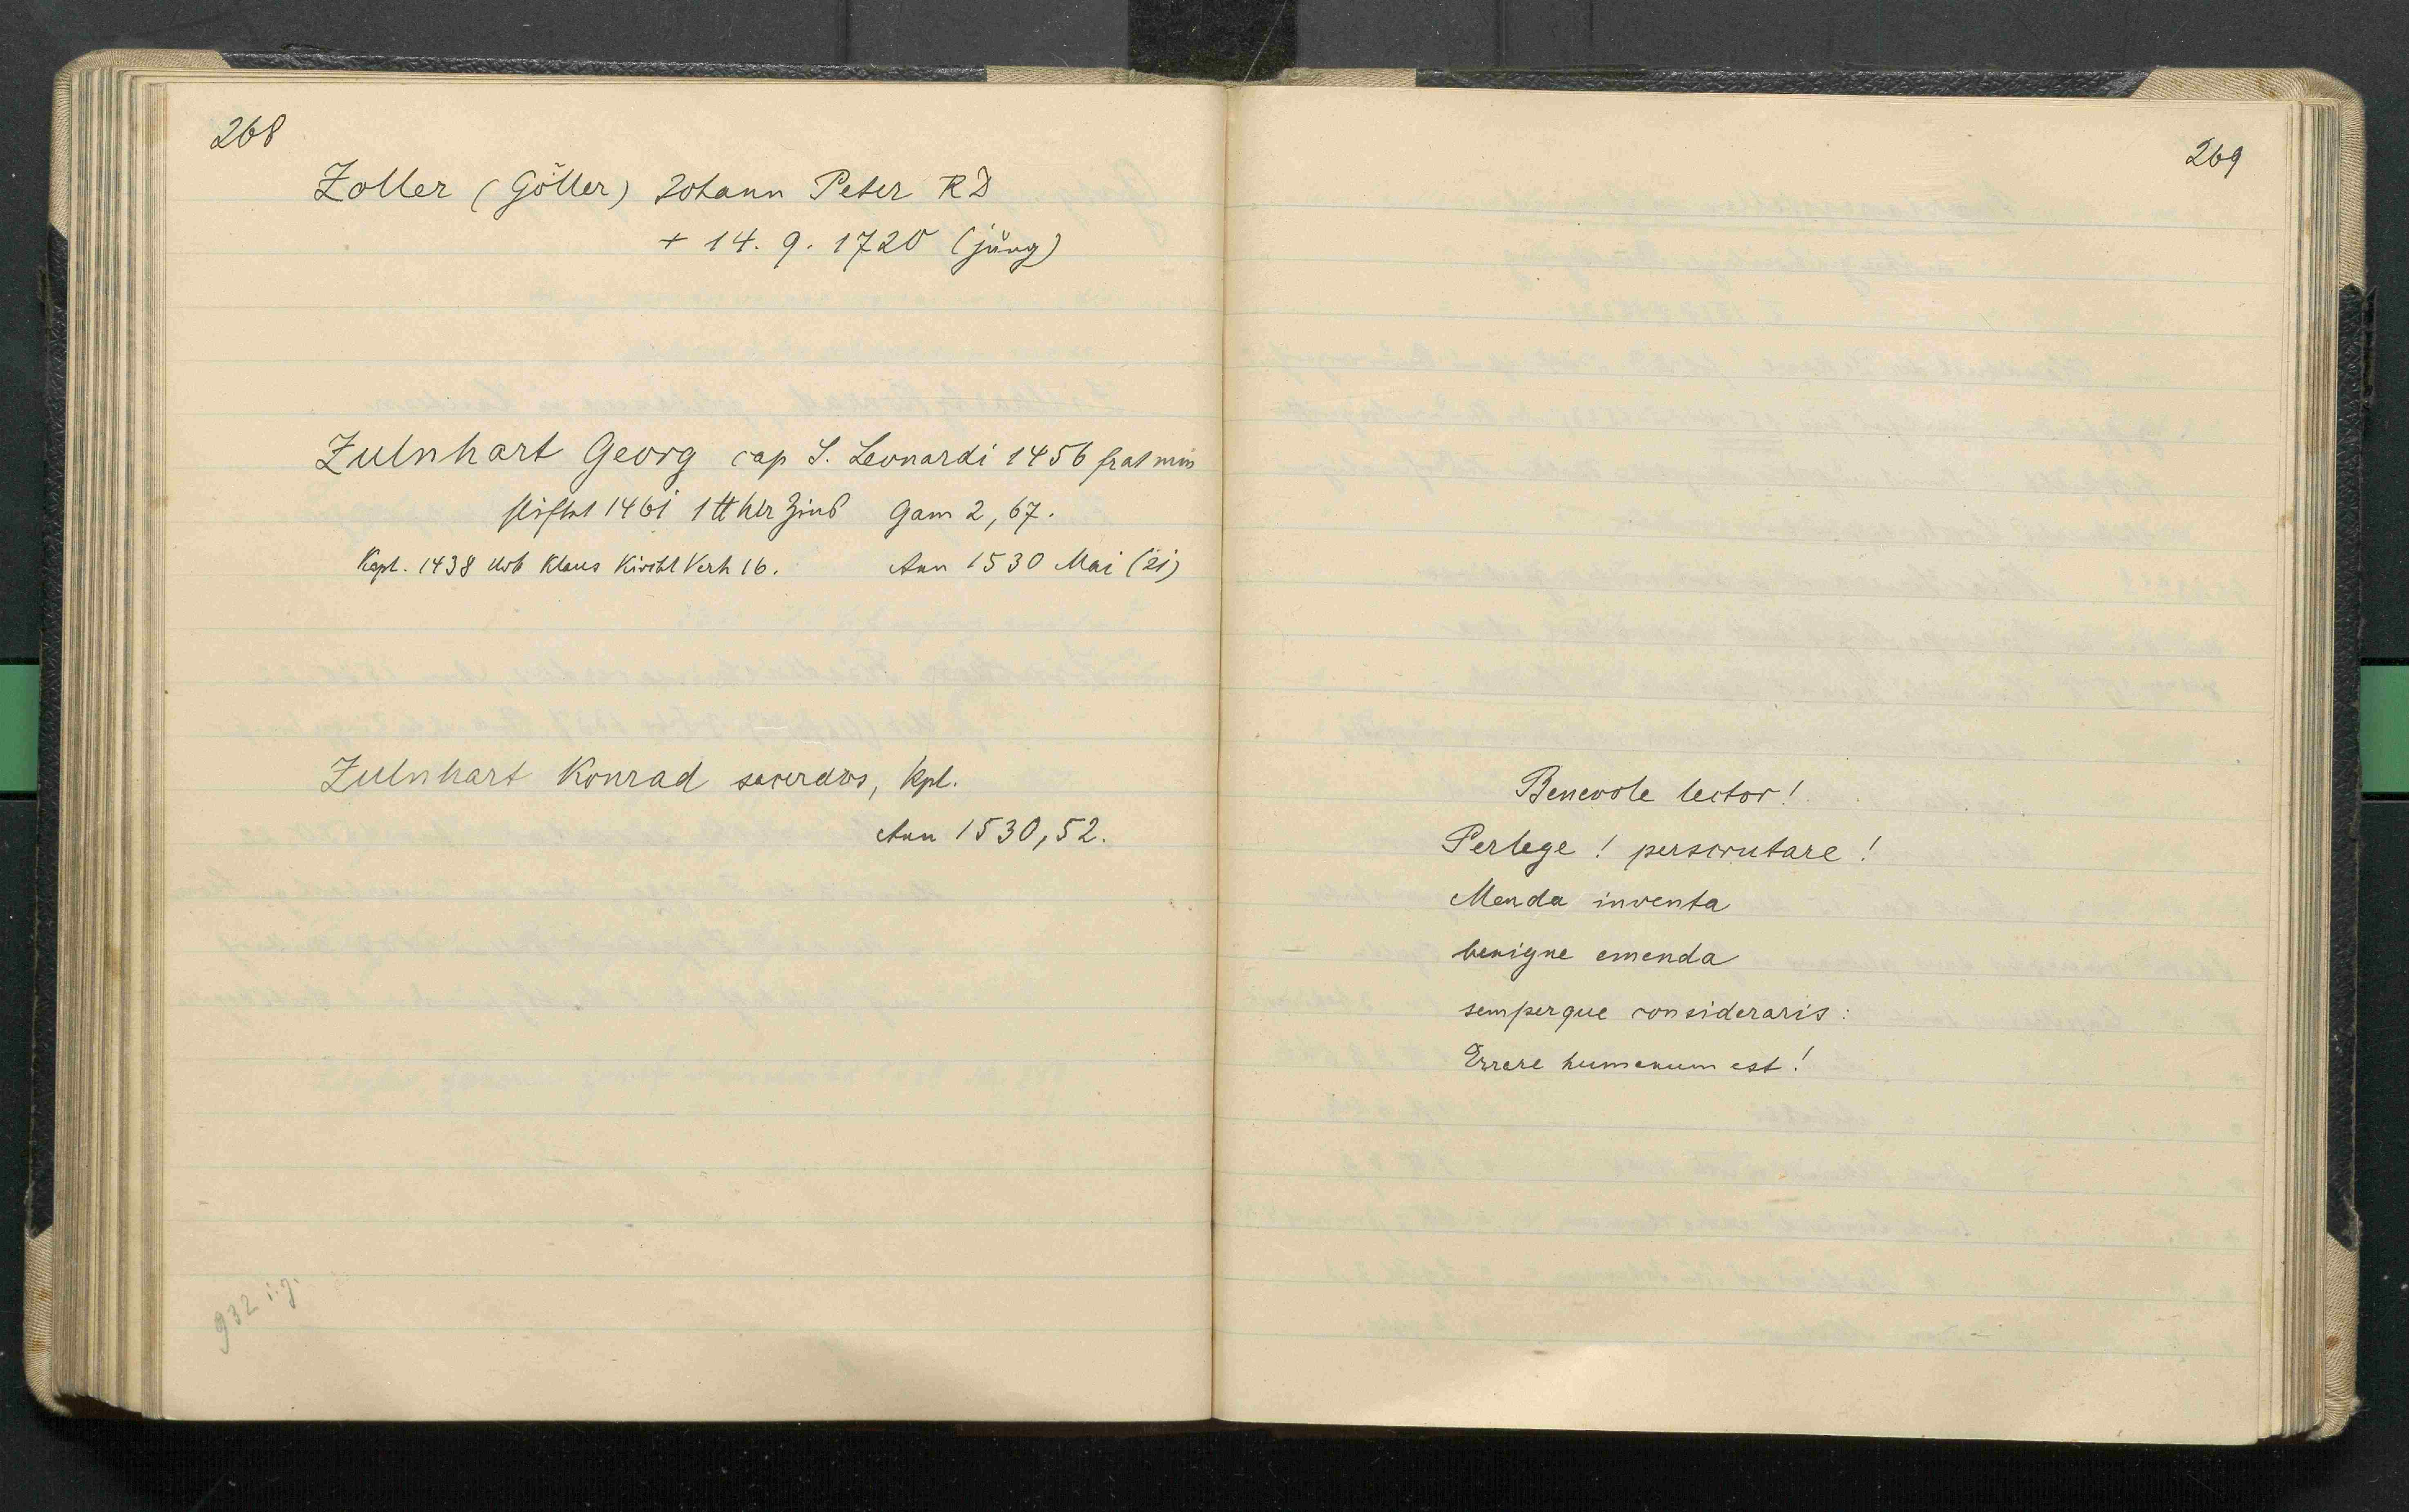 268
Zoller (Göller) Johann Peter RD
+ 14. 9. 1720 (jung)
Zulnhart Georg cap S. Leonardi 1456 frat min
stiftet 1461 1 ℔ hlr Zins Gam 2, 67.
Kapl. 1438 Urb Klaus Kirchl Verh 16. Ann 1530 Mai (21)
Zulnhart Konrad sacerdos, kpl.
Ann 1530, 52.
932 i. g.
269
Benevole lector!
Perlege! perscrutare!
Menda inventa
benigne emenda
semperque consideraris:
Errare humanum est!